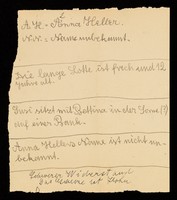 A. H. = Anna Heller.
N. N. = Name unbekannt.
Die lange Lotte ist frech und 12
Jahre alt.
Susi sitzt mit Bettina in der Sonne (!)
auf einer Bank.
Anna Hellers Name ist nicht un-
bekannt.
Schwerer Widerst und
das Schwere ist